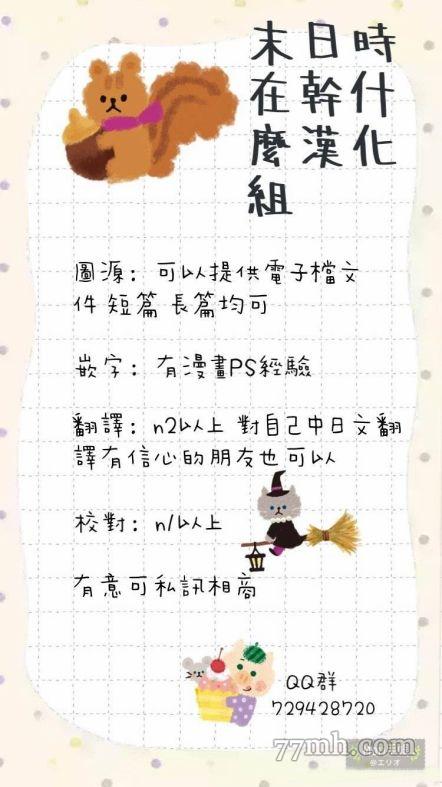 末日時
在幹什
麼漢化
組
圖源：可以提供電子檔文
件 短篇 長篇均可
嵌字：有漫畫PS經驗
翻譯：n2以上 對自己中日文翻
譯有信心的朋友也可以
校對：n1以上
有意可私訊相商
QQ群
729428720
77mh.com
@エリオ